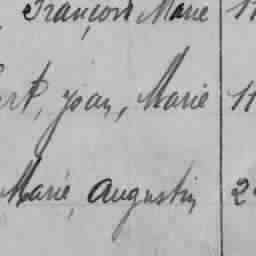 François Marie 11
rt, Jean, Marie 11
Marie, Augustin, 2